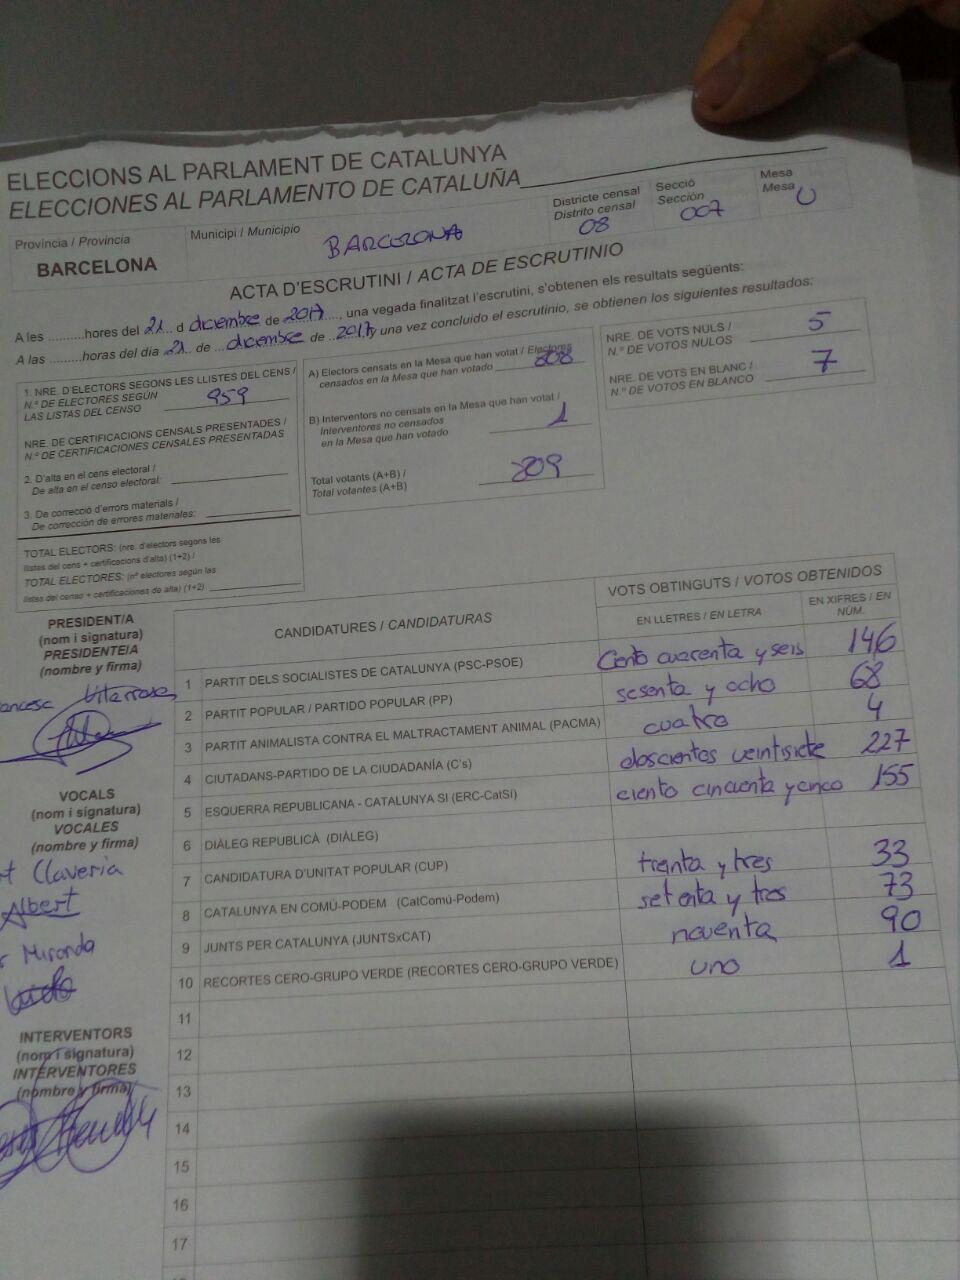 ELECCIONS AL PARLAMENT DE CATALUNYA
ELECCIONES AL PARLAMENTO DE CATALUÑA
Província / Provincia
BARCELONA
Municipi / Municipio
BARCELONA
Districte censal
Distrito censal
08
Secció
Sección
007
Mesa
Mesa
U
ACTA D'ESCRUTINI / ACTA DE ESCRUTINIO
A les ..........hores del 21 d diciembre de 2017, una vegada finalitzat l'escrutini, s'obtenen els resultats següents:
A las ..........horas del día 21 de diciembre de 2017 y una vez concluido el escrutinio, se obtienen los siguientes resultados:
1. NRE. D'ELECTORS SEGONS LES LLISTES DEL CENS /
N.º DE ELECTORES SEGÚN
LAS LISTAS DEL CENSO 959
NRE. DE CERTIFICACIONS CENSALS PRESENTADES /
N.º DE CERTIFICACIONES CENSALES PRESENTADAS
2. D'alta en el cens electoral /
De alta en el censo electoral:
3. De correcció d'errors materials /
De corrección de errores materiales:
TOTAL ELECTORS: (nre. d'electors segons les
llistes del cens + certificacions d'alta) (1+2) /
TOTAL ELECTORES: (nº electores según las
listas del censo + certificaciones de alta) (1+2)
A) Electors censats en la Mesa que han votat / Electores
censados en la Mesa que han votado 808
B) Interventors no censats en la Mesa que han votat /
Interventores no censados
en la Mesa que han votado 1
Total votants (A+B) /
Total votantes (A+B) 809
NRE. DE VOTS NULS /
N.º DE VOTOS NULOS 5
NRE. DE VOTS EN BLANC /
N.º DE VOTOS EN BLANCO 7
PRESIDENT/A
(nom i signatura)
PRESIDENTE/A
(nombre y firma)
VOCALS
(nom i signatura)
VOCALES
(nombre y firma)
Claveria
Albert
Miranda
INTERVENTORS
(nom i signatura)
INTERVENTORES
(nombre y firma)
CANDIDATURES / CANDIDATURAS
VOTS OBTINGUTS / VOTOS OBTENIDOS
EN LLETRES / EN LETRA
EN XIFRES / EN
NÚM.
1 PARTIT DELS SOCIALISTES DE CATALUNYA (PSC-PSOE) Ciento cuarenta y seis 146
2 PARTIT POPULAR / PARTIDO POPULAR (PP) sesenta y ocho 68
3 PARTIT ANIMALISTA CONTRA EL MALTRACTAMENT ANIMAL (PACMA) cuatro 4
4 CIUTADANS-PARTIDO DE LA CIUDADANÍA (C's) doscientos veintisiete 227
5 ESQUERRA REPUBLICANA - CATALUNYA SI (ERC-CatSí) ciento cincuenta y cinco 155
6 DIÀLEG REPUBLICÀ (DIÀLEG)
7 CANDIDATURA D'UNITAT POPULAR (CUP) treinta y tres 33
8 CATALUNYA EN COMÚ-PODEM (CatComú-Podem) setenta y tres 73
9 JUNTS PER CATALUNYA (JUNTSxCAT) noventa 90
10 RECORTES CERO-GRUPO VERDE (RECORTES CERO-GRUPO VERDE) uno 1
11
12
13
14
15
16
17